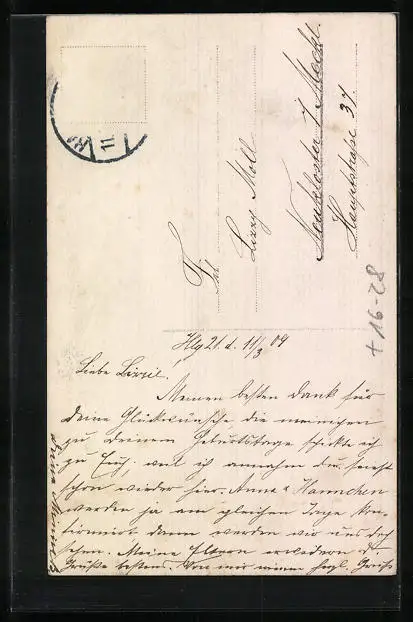 Frl.
Lizzy Moll
Neukloster i/ Meckl.
Hauptstraße 37
+ 16-28
Hbg 21. d. 11/3 09
Liebe Lizzie!
Meinen besten Dank für
deine Glückwünsche, die meinigen
zu deinem Geburtstage schickte ich
zu Euch, weil ich annahm du seiest
schon wieder hier. Anna & Hannchen
werden ja am gleichen Tage kon-
firmirt dann werden wir uns doch
sehen. Meine Eltern erwidern d.
Grüße bestens. Von mir einen herzl. Gruß